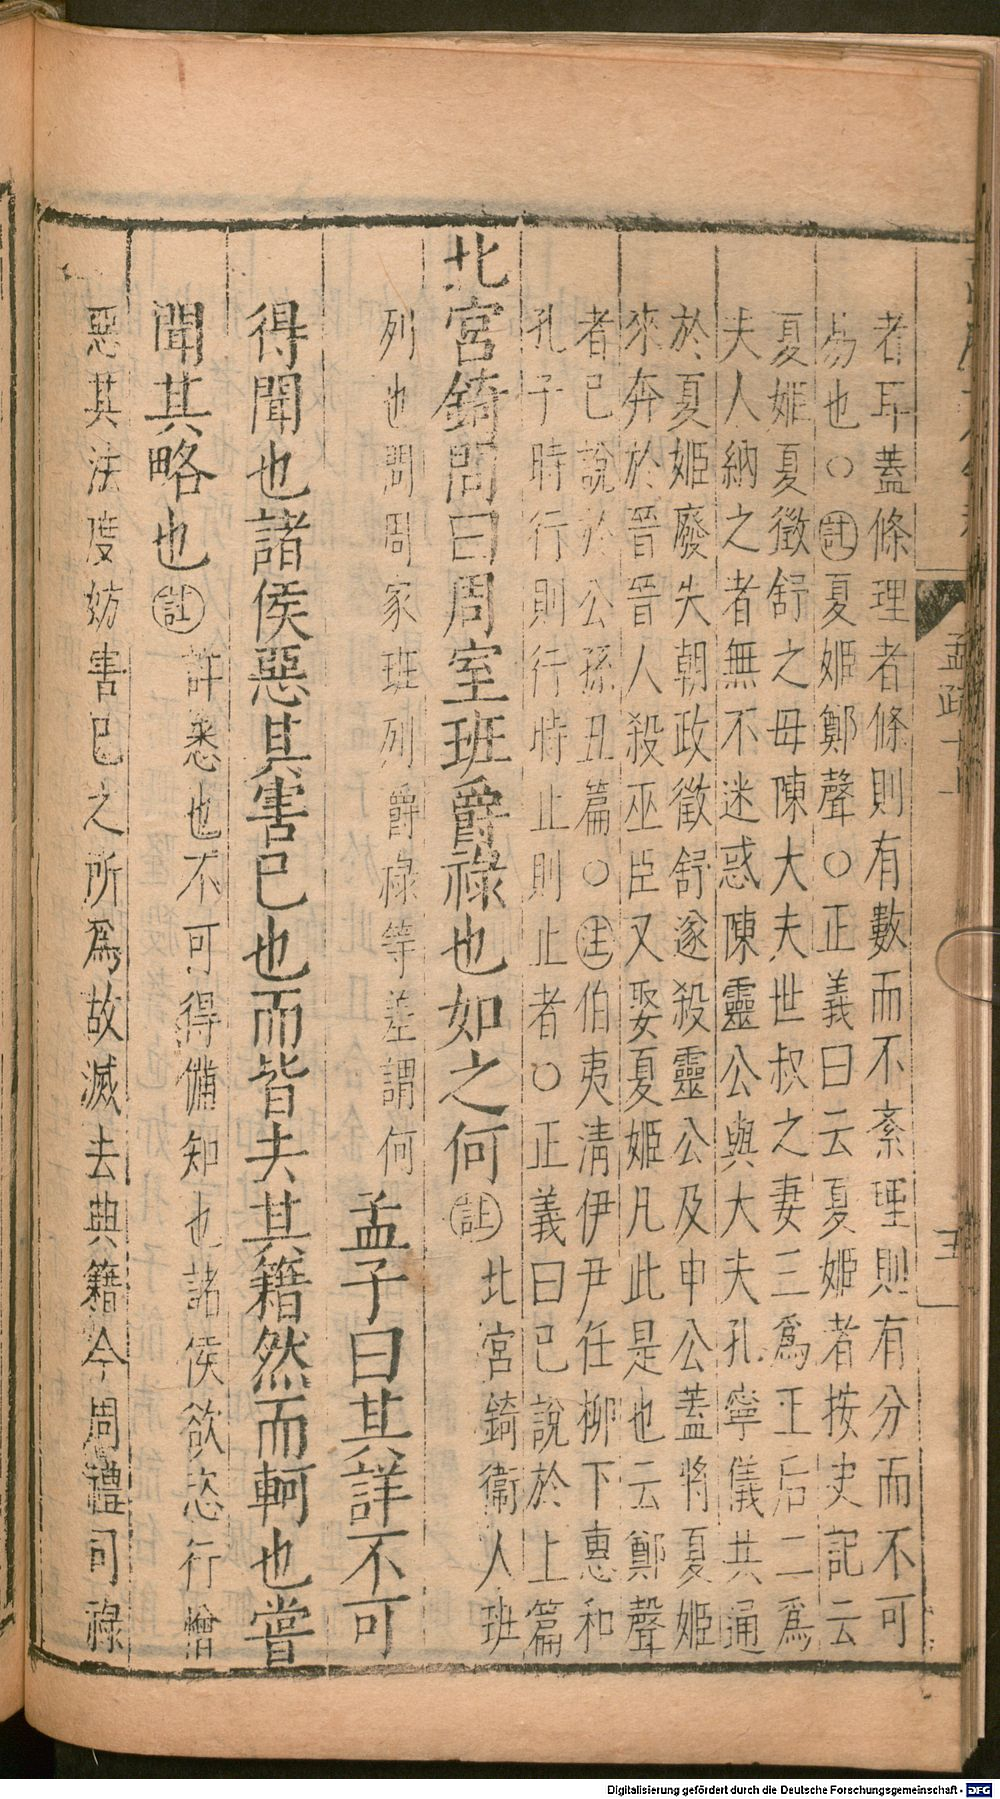 者耳蓋條理者條則有數而不紊理則有分而不可
易也○註夏姬鄭聲○正義曰云夏姬者按史記云
夏姬夏徵舒之母陳大夫世叔之妻三爲王后二爲
夫人納之者無不迷惑陳靈公與大夫孔寧儀共通
於夏姬廢失朝政徵舒遂殺靈公及申公蓋將夏姬
來奔於晉晉人殺巫臣又娶夏姬凡此是也云鄭聲
者已說於公孫丑篇○注伯夷淸伊尹任柳下惠和
孔子時行則行時止則止者○正義曰已說於上篇
北宮錡問曰周室班爵祿也如之何註北宮錡衞人班
列也問周家班列爵祿等差謂何孟子曰其詳不可
得聞也諸侯惡其害已也而皆去其籍然而軻也嘗
聞其略也註詳悉也不可得備知也諸侯欲恣行憎
惡其法度妨害已之所爲故滅去典籍今周禮司祿
孟疏十
五
Digitalisierung gefördert durch die Deutsche Forschungsgemeinschaft - DFG